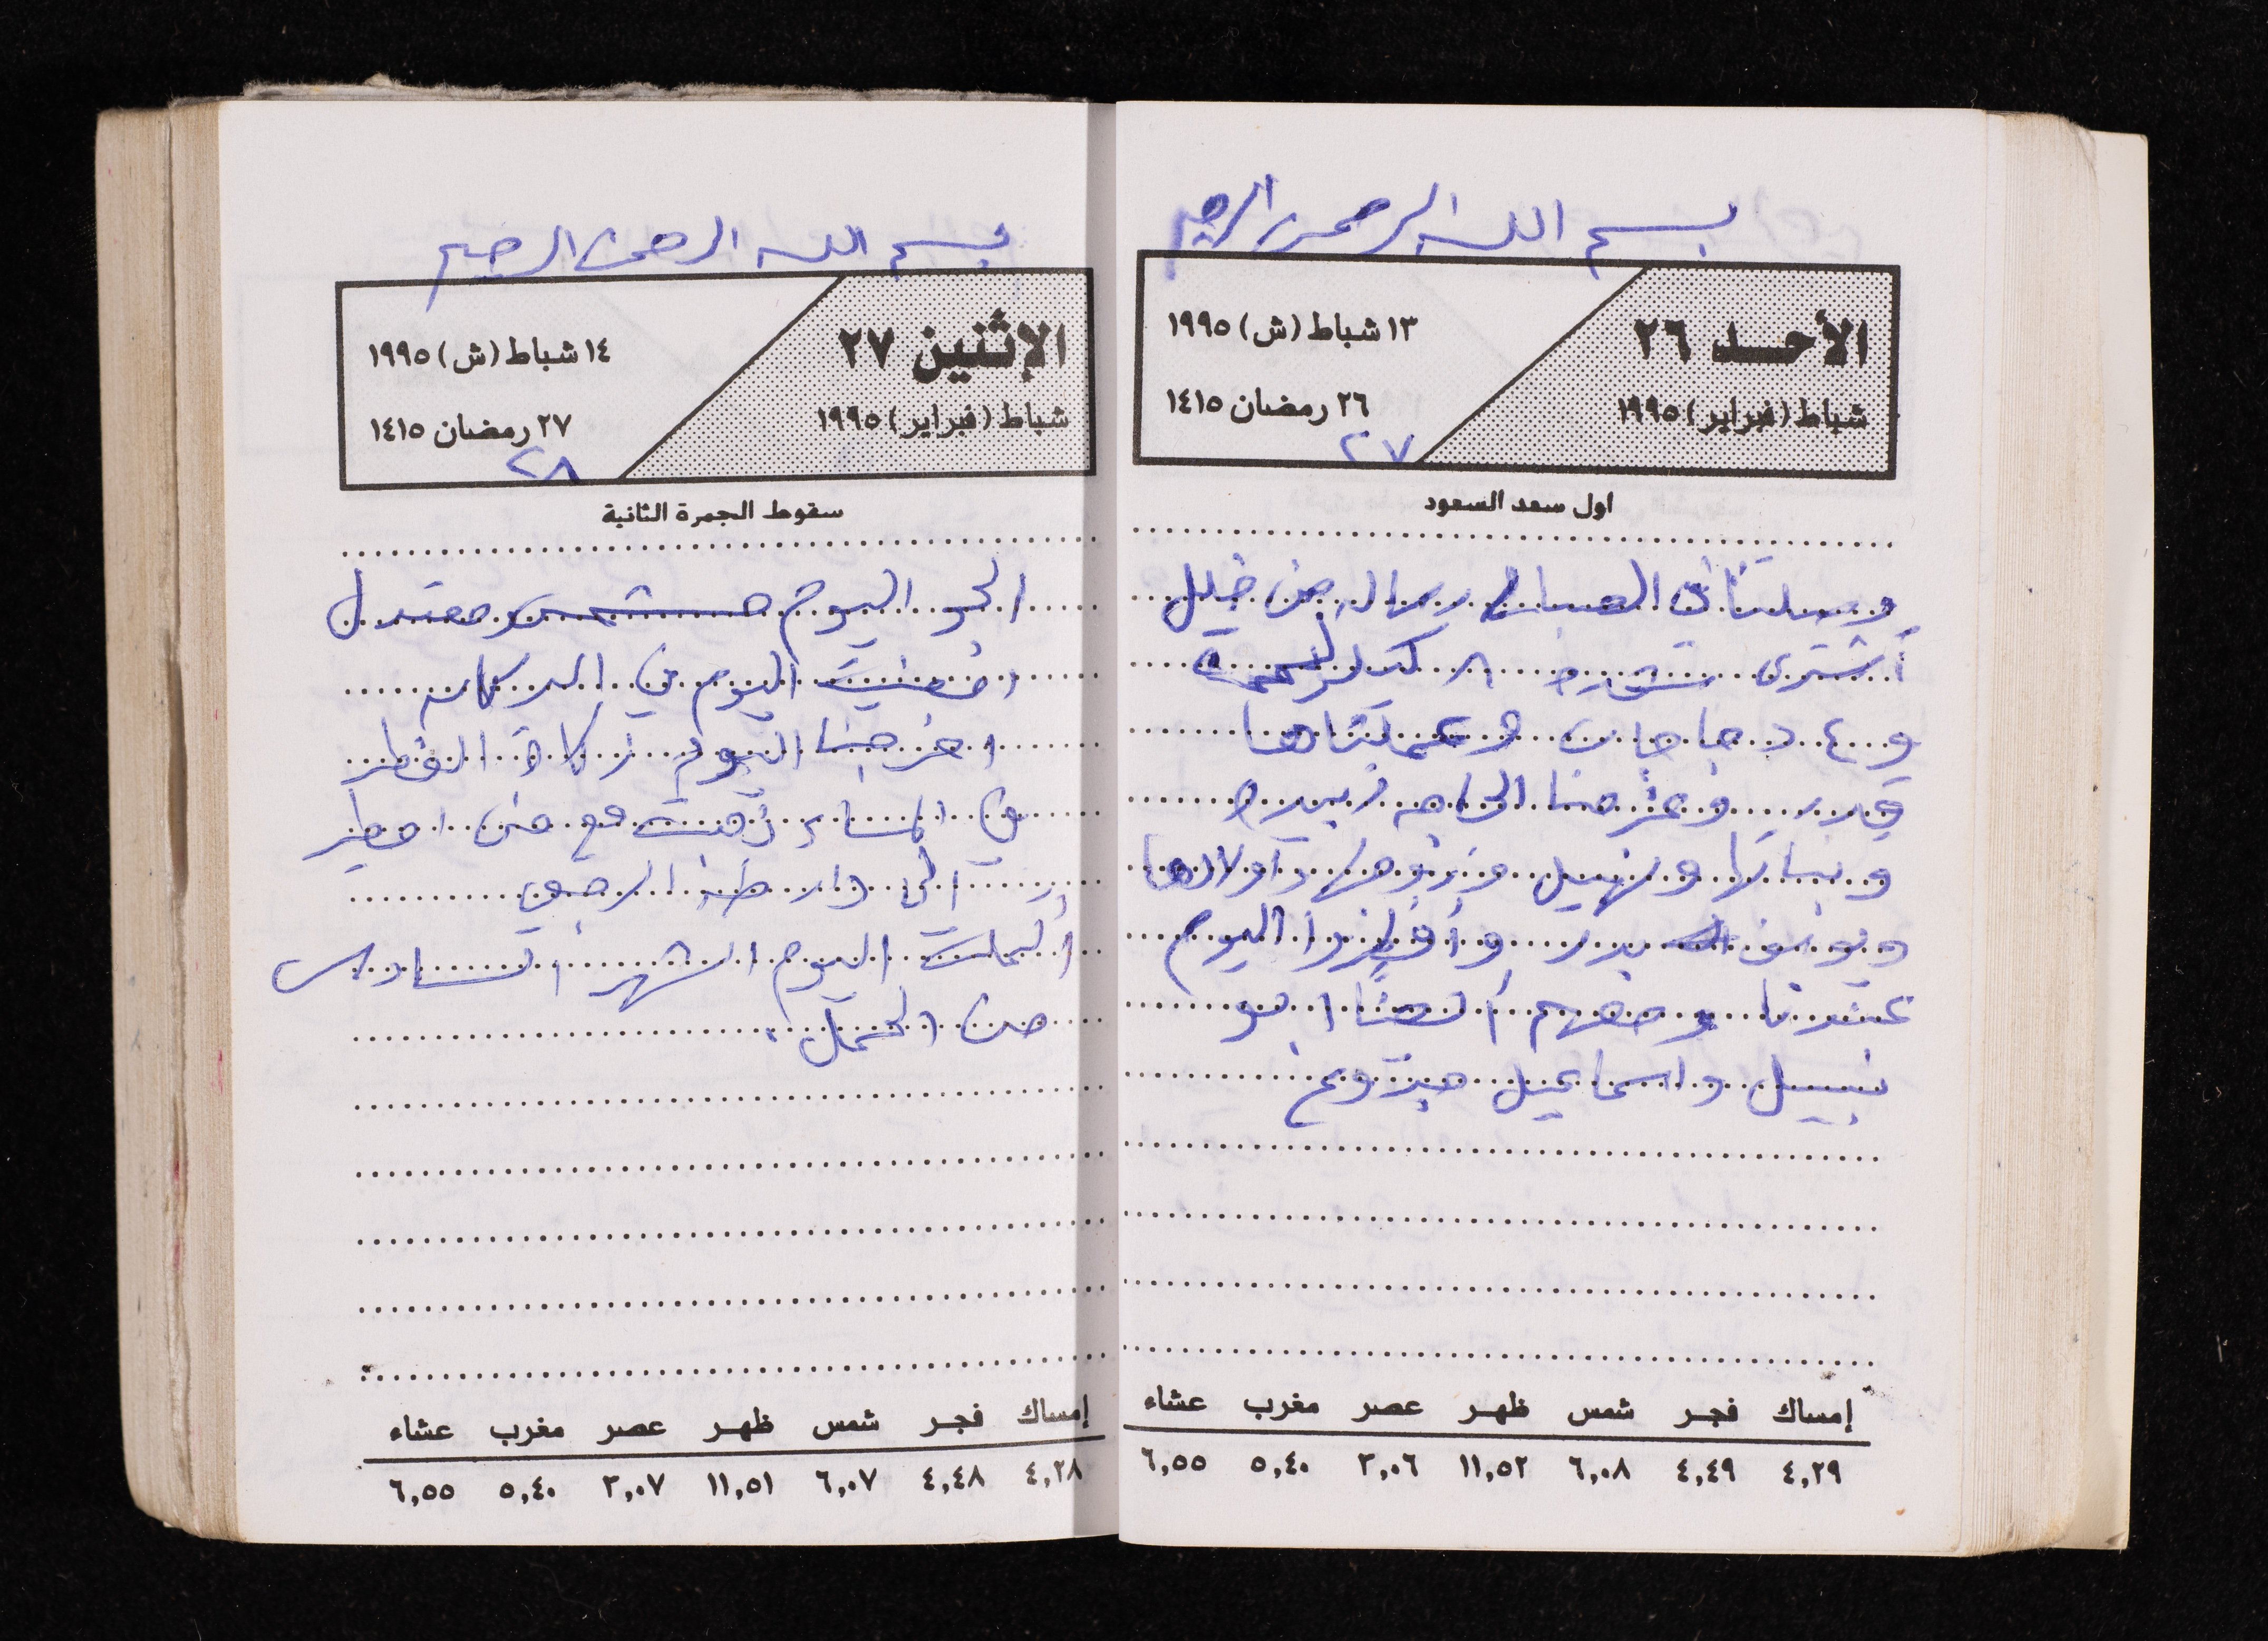 بسم الله الرحمن الرحيم
الأحد ٢٦
شباط (فبراير) ١٩٩٥
١٣ شباط (ش) ١٩٩٥
٢٦ رمضان ١٤١٥
٢٧
اول سعد السعود
وصلتنا في الصباح رساله من خليل
أشترى شقره ٨ كيلو لحمة
و ٤ دجاجات وعملناها
قدر وعزمنا الحاجه زبيده
وبناتها ونهيل وزوجها وأولادها
ويوسف بدر وأفطروا اليوم
عندنا ومعهم أيضا ابو
نبيل واسماعيل
إمساك فجر شمس ظهر عصر مغرب عشاء
٤,٢٩ ٤,٤٩ ٦,٠٨ ١١,٥٢ ٣,٠٦ ٥,٤٠ ٦,٥٥
بسم الله الرحمن الرحيم
الإثنين ٢٧
شباط (فبراير) ١٩٩٥
١٤ شباط (ش) ١٩٩٥
٢٧ رمضان ١٤١٥
٢٨
سقوط الجمرة الثانية
الجو اليوم مشمس معتدل
امضيت اليوم في الدكان
اخرجنا اليوم زكاة الفطر
وفي المساء ذهبت مع منى امطير
الى دار طه الرجبي
أكملت اليوم الشهر السادس
من الحمل.
إمساك فجر شمس ظهر عصر مغرب عشاء
٤,٢٨ ٤,٤٨ ٦,٠٧ ١١,٥١ ٣,٠٧ ٥,٤٠ ٦,٥٥